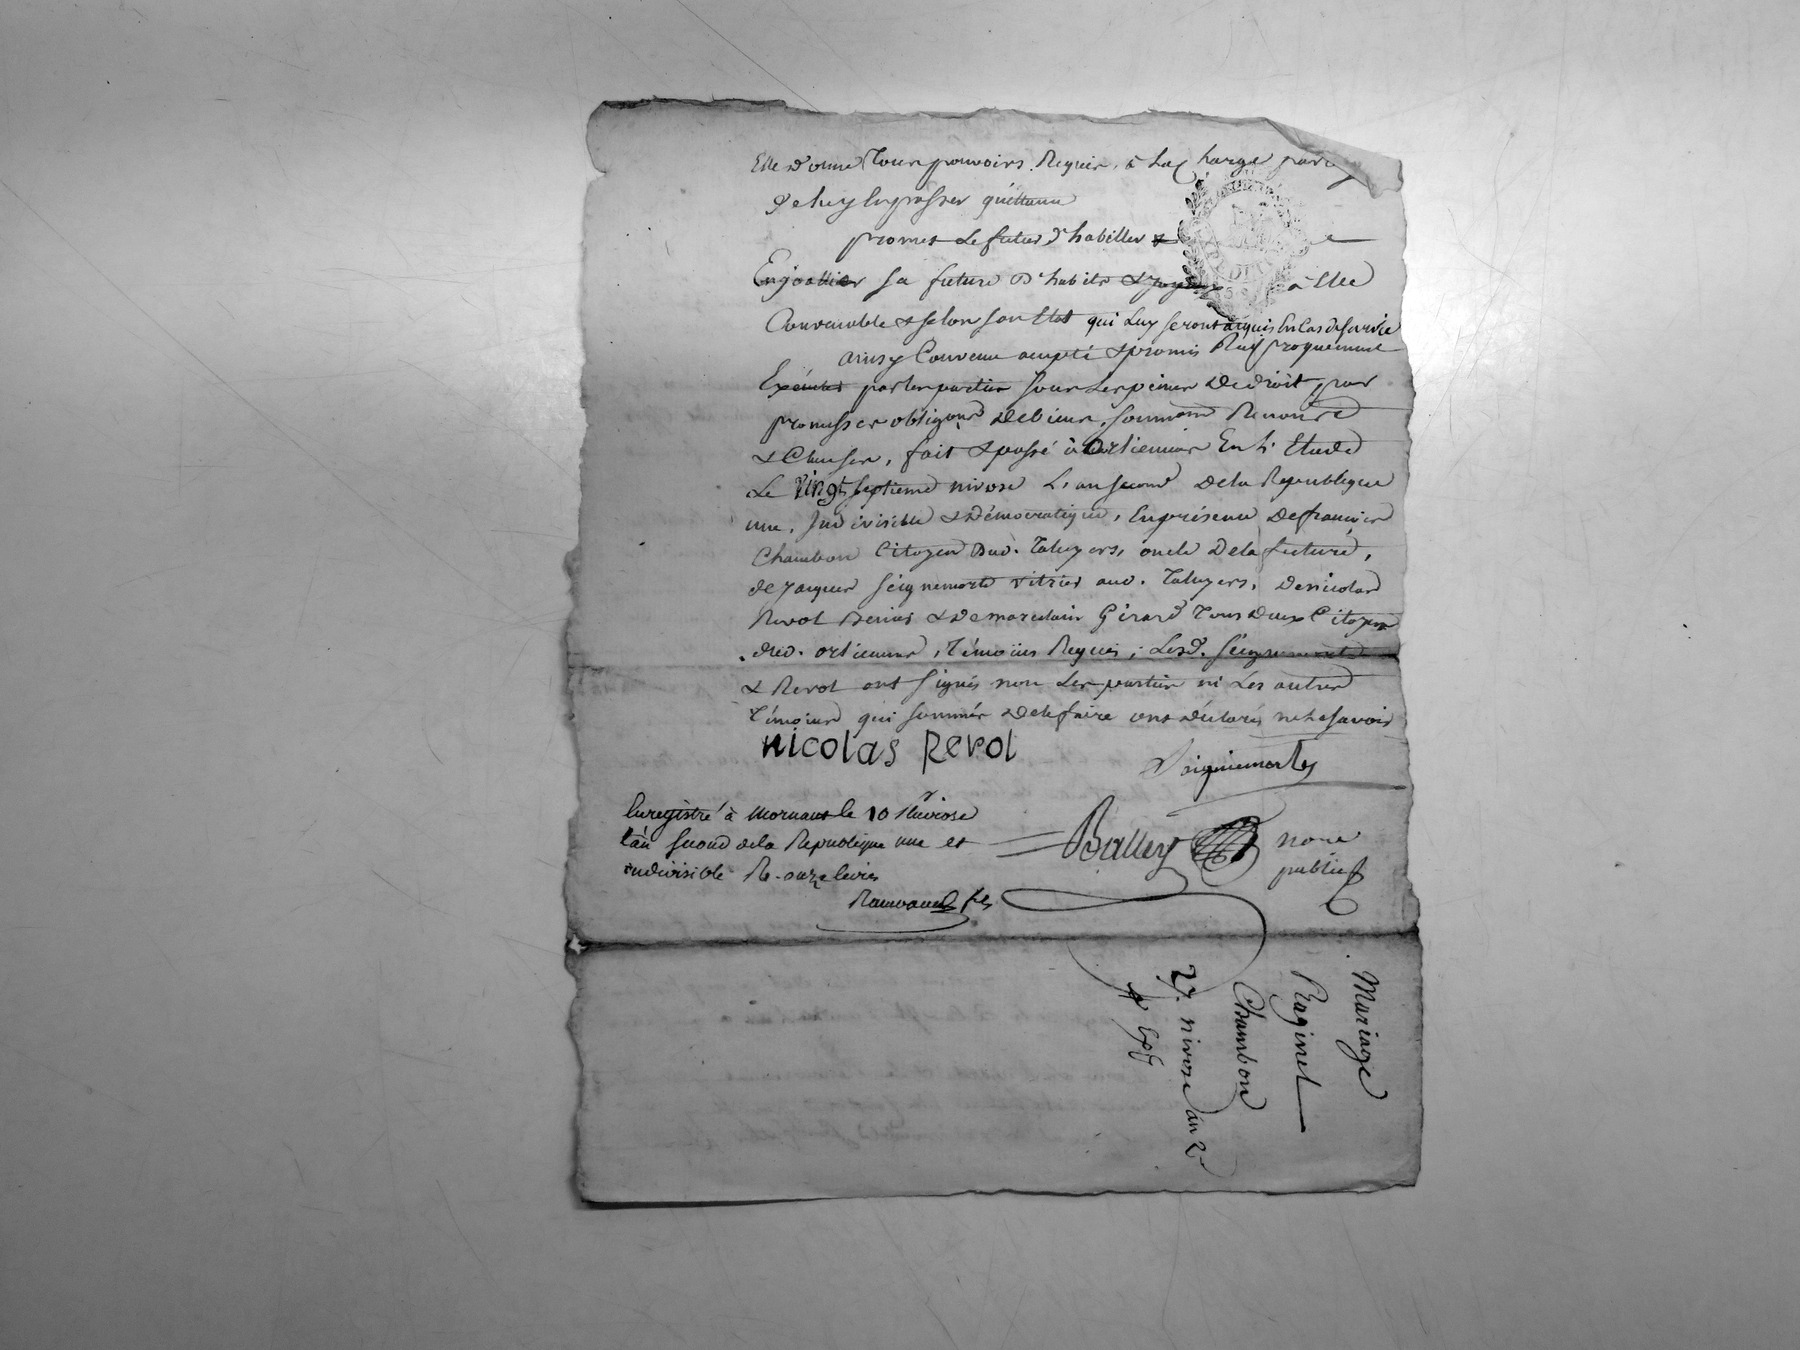 Elle donne Tous pouvoirs Requis, à La Charge par
de luy En passer quittance
promet Le futur d'habiller &
Enjoallier sa future d'habits & joyaux à Elle
Convenable & selon son Etat qui Luy seront acquis En Cas de survie
ainsy Convenu accepté & promis Réciproquement
Exécuter par les parties sous Les peines de droit, par
promesses obligaons de biens, soumons Renonce
& Clauses, fait & passé à Orliennas En l'Etude
Le vingt septieme nivose L'an second de la Republique
une, Indivisible & démocratique, En présence de francois
Chambon Citoyen dud. Taluyers, oncle de la future,
de Jacques Seignemorte vitrier aud. Taluyers, de nicolas
Revol & de Girard Tous deux Citoyens
dud. orliennas, Témoins Requis, Lesd. Seignemorte
& Revol ont signés non Les parties ni Les autres
Témoins qui sommés de le faire ont déclarés ne le savoir
nicolas Revol
Seignemorte
Enregistré à Mornant le 10 Pluviose
l'an second de la Republique une et
indivisible R.
Balley nore
public
Mariage
Raginel
Chambon
27. nivose an 2
Exp